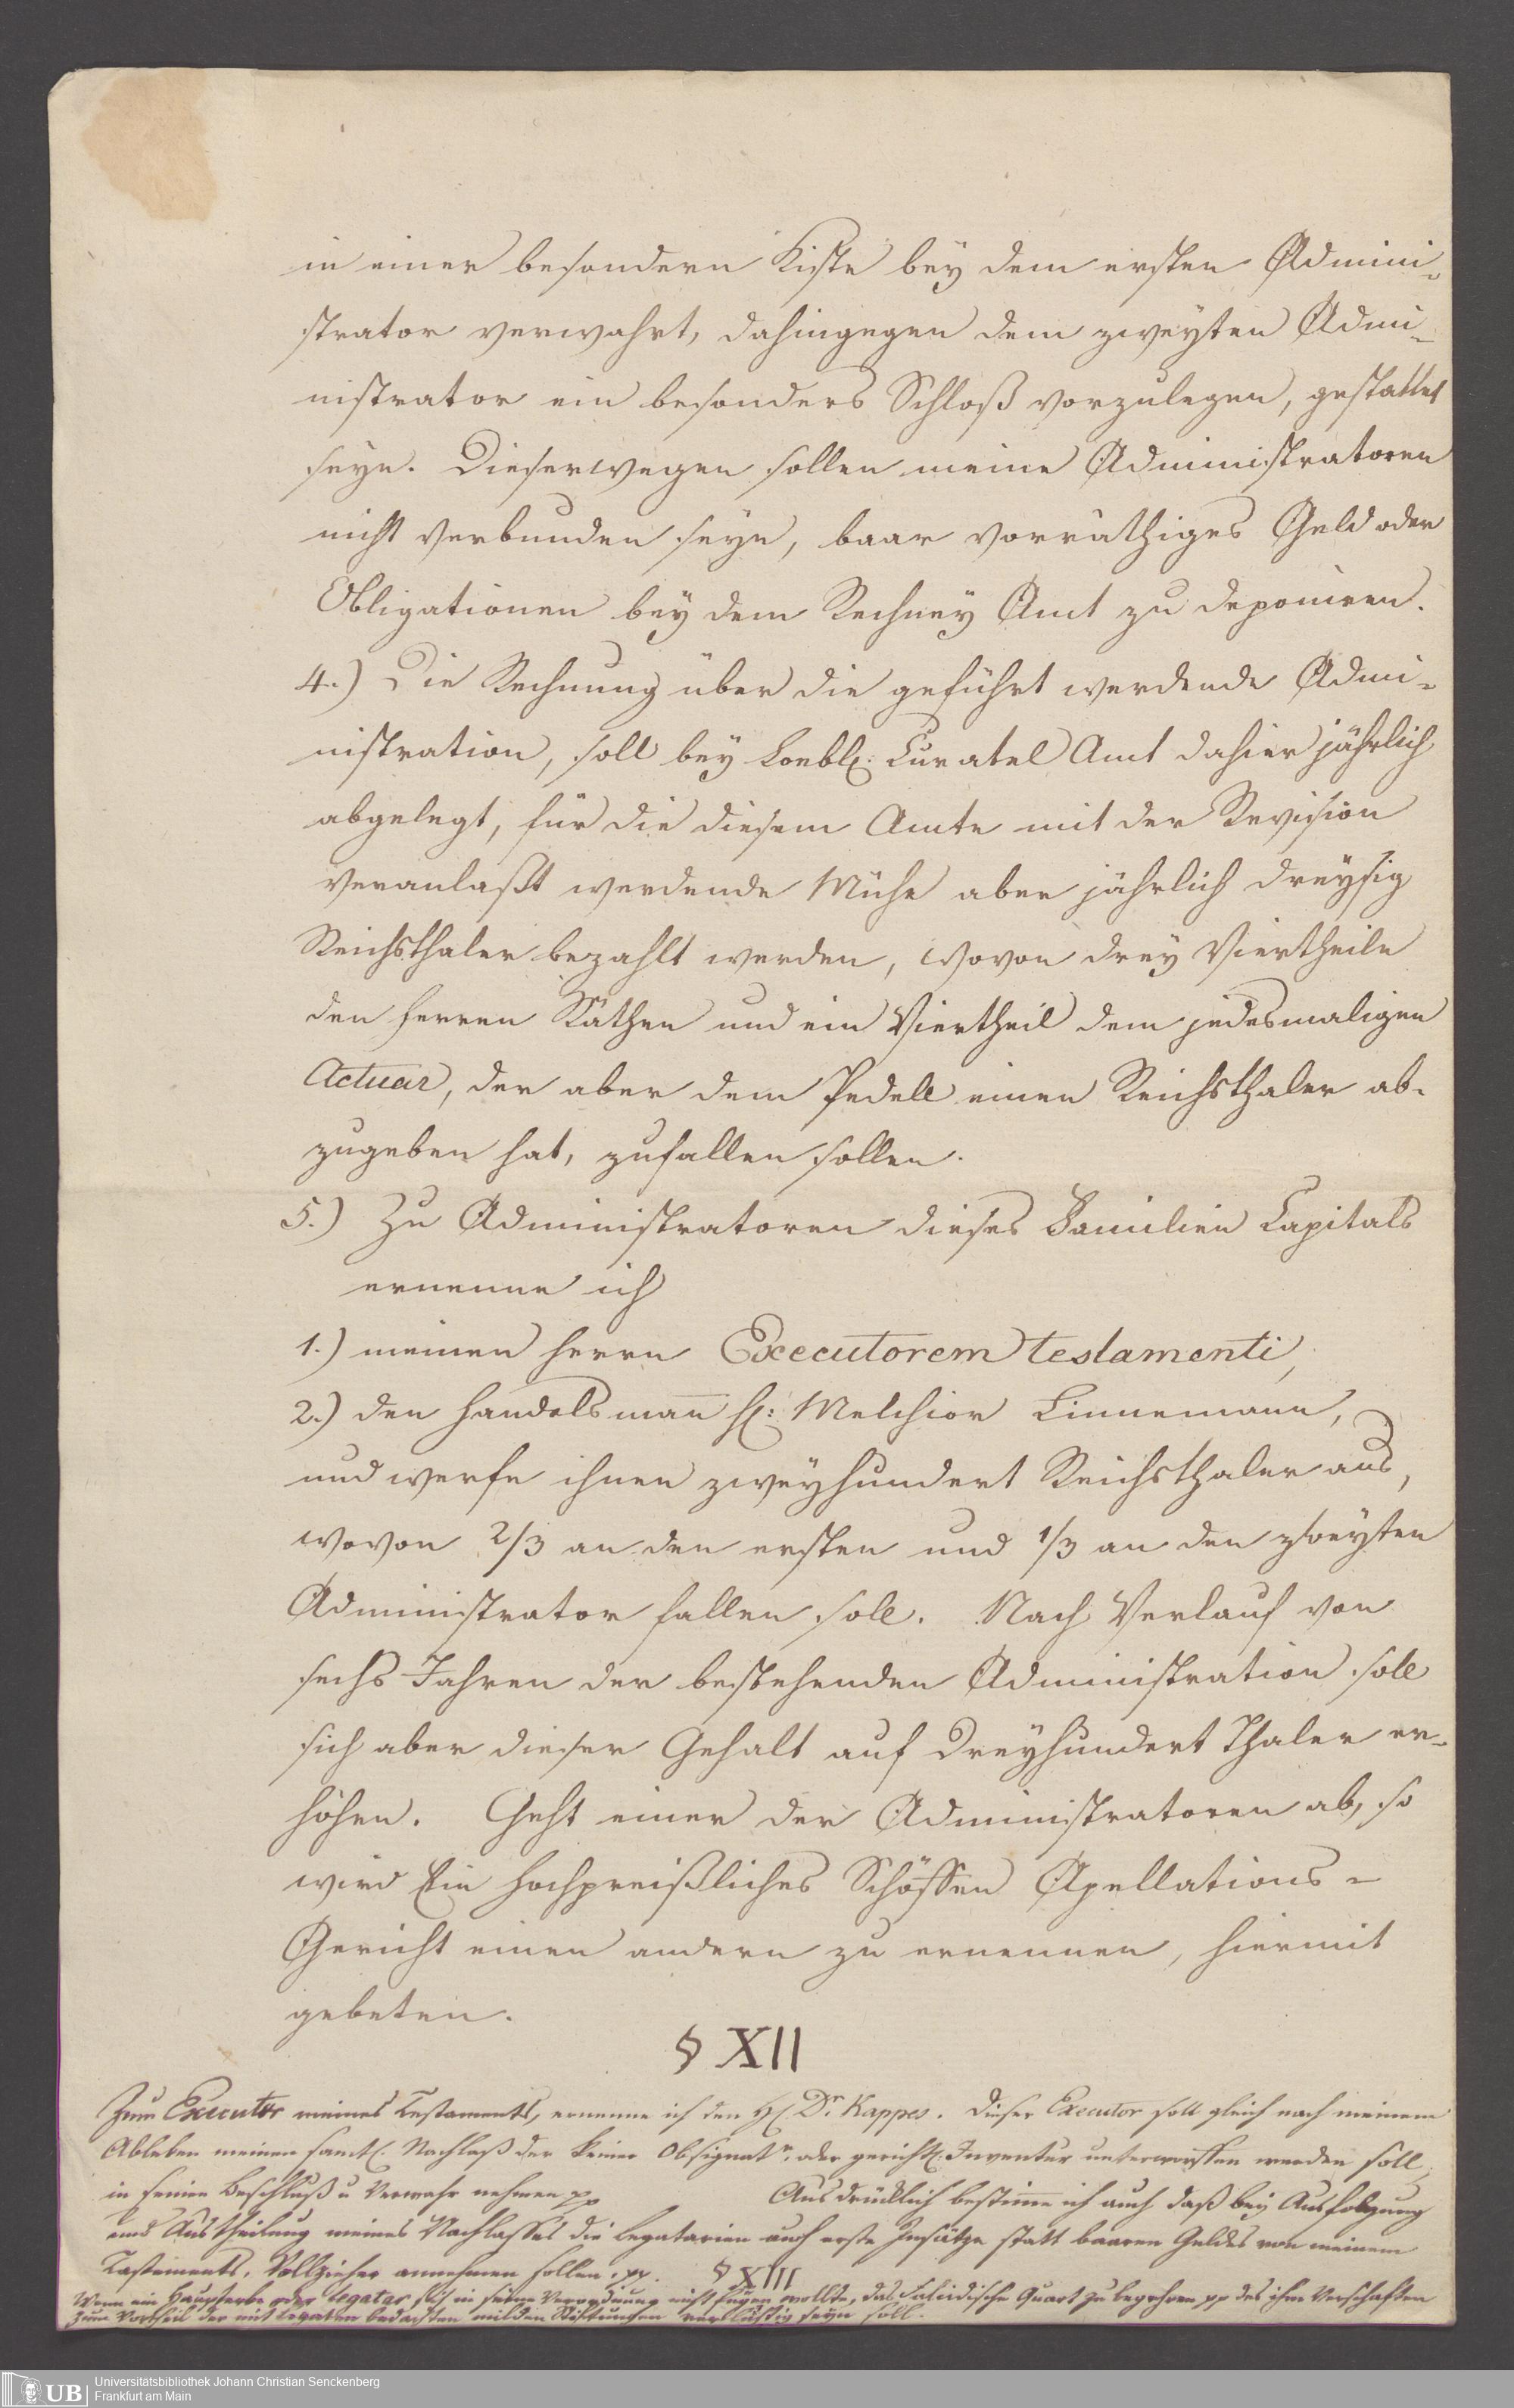 in einer besondern Kiste bey dem ersten Admini-
strator verwahrt, dahingegen dem zweyten Admi-
nistrator ein besonders Schloß vorzulegen, gestattet
seyn. Dieserwegen sollen meine Administratoren
nicht verbunden seyn, baar vorräthiges Geld oder
Obligationen bey dem Rechney Amt zu deponiren.
4.) Die Rechnung über die geführt werdende Admi-
nistration, soll bey Loebl: Curatel Amt dahier jährlich
abgelegt, für die diesem Amte mit der Revision
veranlaßt werdende Mühe aber jährlich dreysig
Reichsthaler bezahlt werden, wovon drey Viertheile
den Herren Räthen und ein Viertheil dem jedesmaligen
Actuar, der aber dem Pedell einen Reichsthaler ab-
zugeben hat, zufallen sollen.
5.) Zu Administratoren dieses Familien Capitals
ernenne ich
1.) meinen Herrn Executorem testamenti,
2.) den Handelsman̄ H: Melchior Linnemann,
und werfe ihnen zweyhundert Reichsthaler aus,
wovon 2/3 an den ersten und 1/3 an den zweyten
Administrator fallen soll. Nach Verlauf von
sechs Jahren der bestehenden Administration soll
sich aber dieser Gehalt auf dreyhundert Thaler er-
höhen. Geht einer der Administratoren ab, so
wird Ein Hochpreißliches Schöffen Apellations-
Gericht einen andern zu ernennen, hiermit
gebeten.
§ XII
Zum Executor meines Testaments, ernenne ich den H Dr. Kappes. Dieser Executor soll gleich nach meinem
Ableben meinen samtl. Nachlaß der keiner Obsignatn. oder gerichtl. Inventur unterworffen werden soll,
in seinen Beschluß u Verwahr nehmen pp Ausdrücklich bestim̄e ich auch daß bey Ausfolgung
und Austheilung meines Nachlasses die Legatarien auch erste Insätze statt baaren Geldes von meinem
Testaments, Vollzieher annehmen sollen. pp. § XIII
Wenn ein Haupterbe oder Legatar sich in seine Verordnung nicht fügen wollte, das Falcidische Quart zu begehren pp des ihm Verschafften
zum Vortheil der mit Legaten bedachten milden Stiftungen verlustig seyn soll.
UB
Universitätsbibliothek Johann Christian Senckenberg
Frankfurt am Main